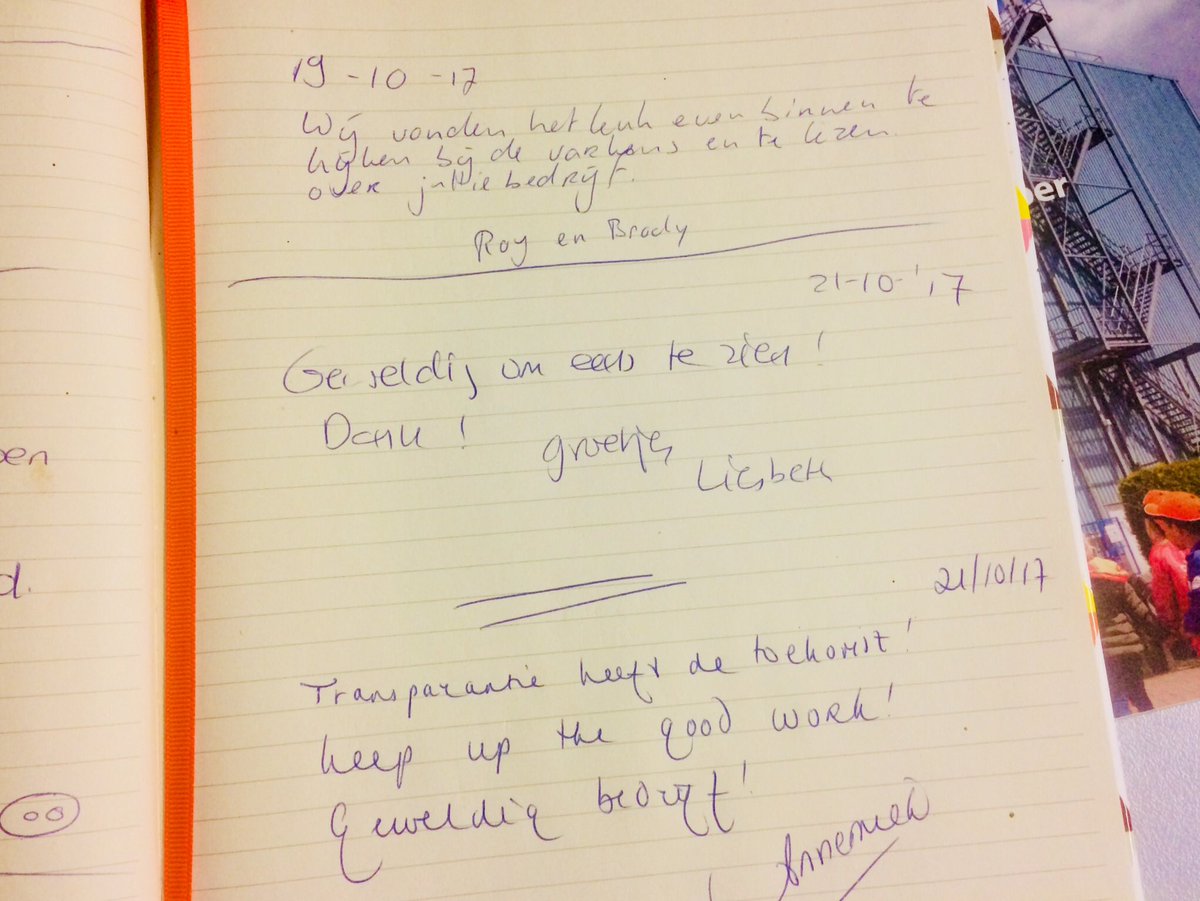 19-10-17
Wij vonden het leuk even binnen te
kijken bij de varkens en te lezen
over jullie bedrijf.
Roy en Brody
21-10-'17
Geweldig om eens te zien!
Dank!
groetjes
Liesbeth
21/10/17
Transparantie heeft de toekomst!
keep up the good work!
Geweldig bedrijf!
Annemiek
en
d.
ber